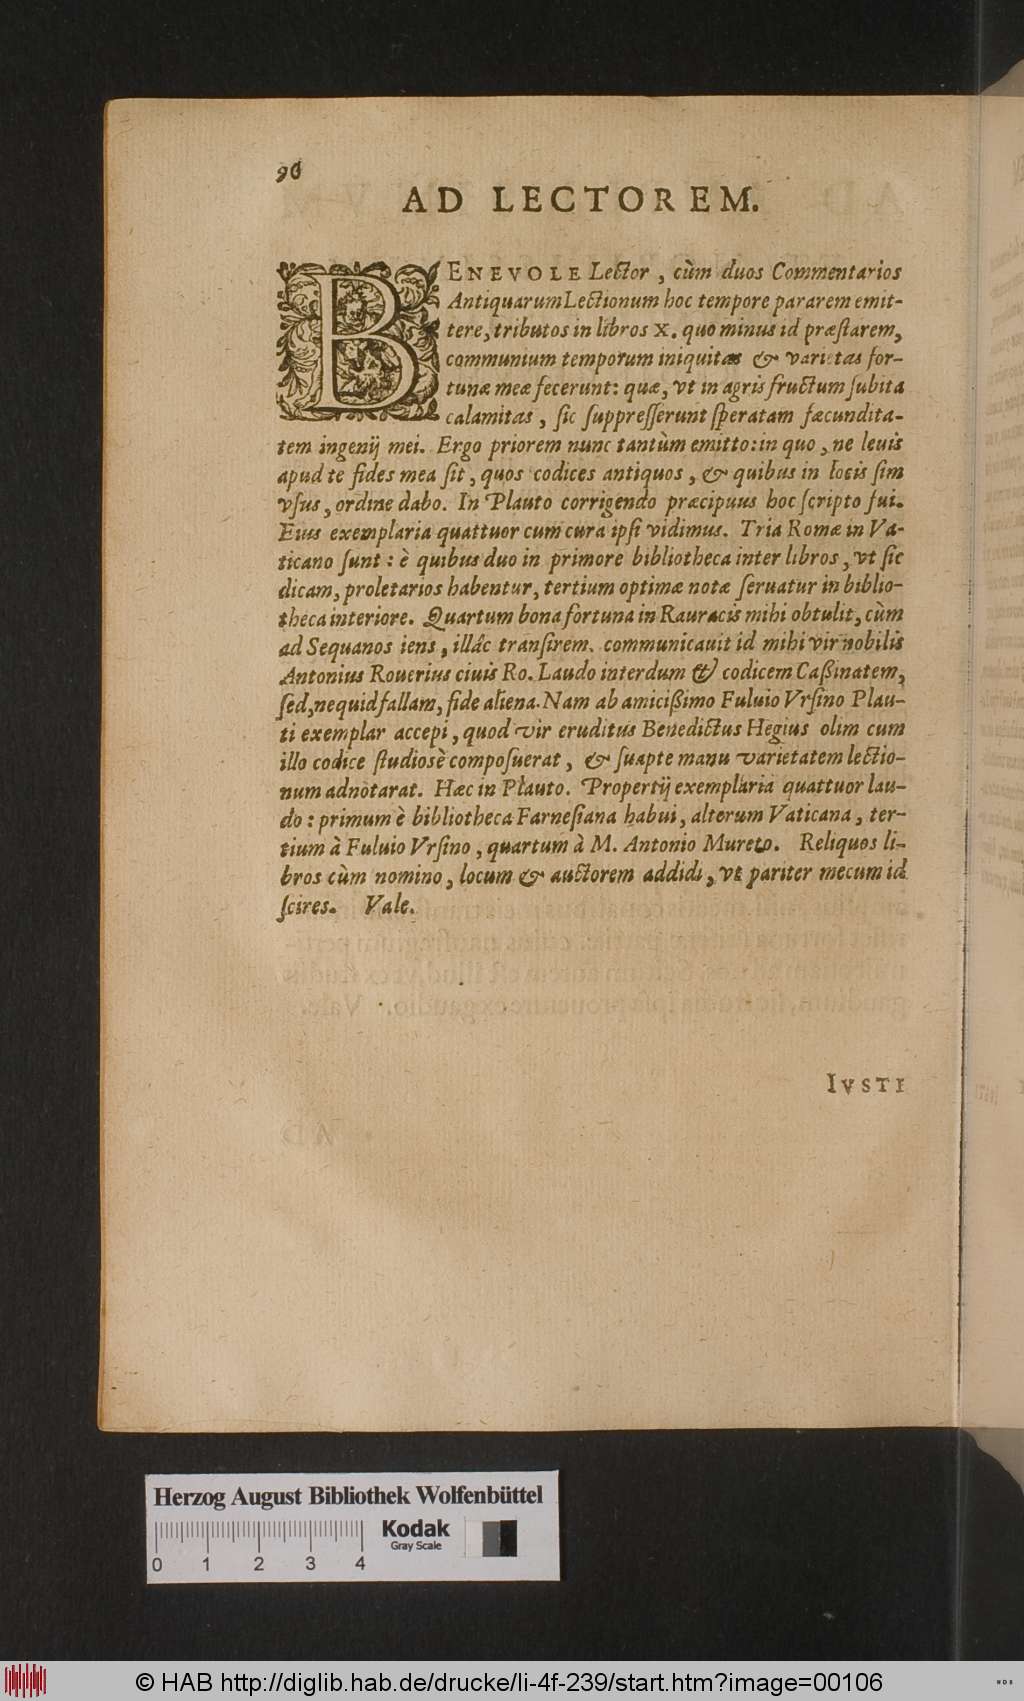 96
AD LECTOREM.
BENEVOLE Lector, cùm duos Commentarios
Antiquarum Lectionum hoc tempore pararem emit-
tere, tributos in libros X. quo minus id præſtarem,
communium temporum iniquitas & varietas for-
tunæ meæ fecerunt: quæ, vt in agris fructum ſubita
calamitas, ſic ſuppreſſerunt ſperatam fæcundita-
tem ingenij mei. Ergo priorem nunc tantùm emitto: in quo, ne leuis
apud te fides mea ſit, quos codices antiquos, & quibus in locis ſim
vſus, ordine dabo. In Plauto corrigendo præcipuus hoc ſcripto fui.
Eius exemplaria quattuor cum cura ipſi vidimus. Tria Romæ in Va-
ticano ſunt: è quibus duo in primore bibliotheca inter libros, vt ſic
dicam, proletarios habentur, tertium optimæ notæ ſeruatur in biblio-
theca interiore. Quartum bona fortuna in Rauracis mihi obtulit, cùm
ad Sequanos iens, illâc tranſirem. communicauit id mihi vir nobilis
Antonius Rouerius ciuis Ro. Laudo interdum & codicem Caßinatem,
ſed, nequid fallam, fide aliena. Nam ab amicißimo Fuluio Vrſino Plau-
ti exemplar accepi, quod vir eruditus Benedictus Hegius olim cum
illo codice ſtudiosè compoſuerat, & ſuapte manu varietatem lectio-
num adnotarat. Hæc in Plauto. Propertij exemplaria quattuor lau-
do: primum è bibliotheca Farneſiana habui, alterum Vaticana, ter-
tium à Fuluio Vrſino, quartum à M. Antonio Mureto. Reliquos li-
bros cùm nomino, locum & auctorem addidi, vt pariter mecum id
ſcires. Vale.
IVSTI
Herzog August Bibliothek Wolfenbüttel
0 1 2 3 4
Kodak
Gray Scale
© HAB http://diglib.hab.de/drucke/li-4f-239/start.htm?image=00106